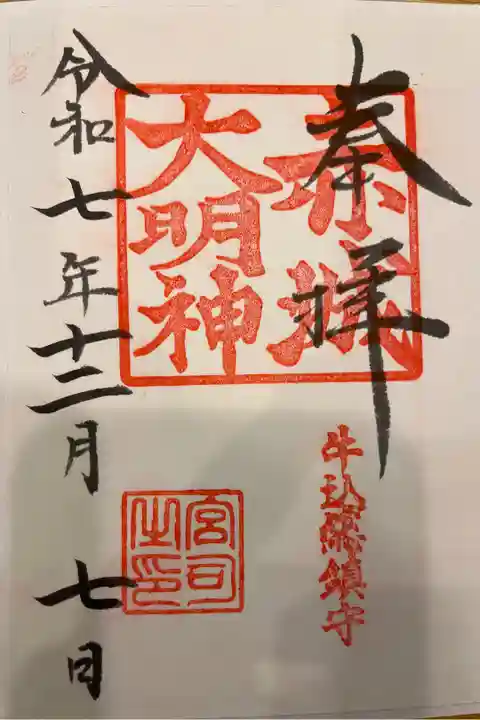 奉拝
赤城
大明神
牛込總鎮守
宮司
之印
令和七年十二月七日